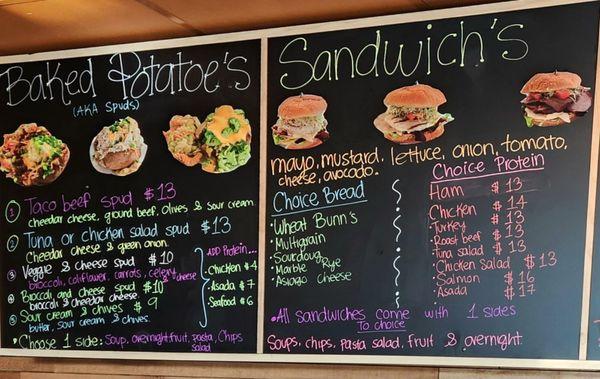 Baked Potatoe's
(AKA Spuds)
① Taco beef spud $13
cheedar cheese, ground beef, olives & sour cream.
② Tuna or chicken salad spud $13
Cheedar cheese & green onion.
③ Veggie & cheese spud $10
broccoli, califlower, carrots, celery & cheese
④ Broccoli and cheese spud $10
broccoli & cheedar cheese
⑤ Sour cream & chives $9
butter, sour cream & chives.
ADD Protein...
Chicken $4
Asada $7
Seafood $6
Choose 1 side: Soup, overnight.fruit, pasta, Chips
salad
Sandwich's
mayo, mustard, lettuce, onion, tomato,
cheese, avocado.
Choice Bread
Wheat Bunn's
Multigrain
Sourdoug
Marble Rye
Asiago Cheese
Choice Protein
Ham $13
Chicken $14
Turkey $13
Roast beef $13
Tuna salad $13
Chicken Salad $13
Salmon $16
Asada $17
All sandwiches come with 1 sides
To choice
Soups, chips, pasta salad, fruit & overnight.